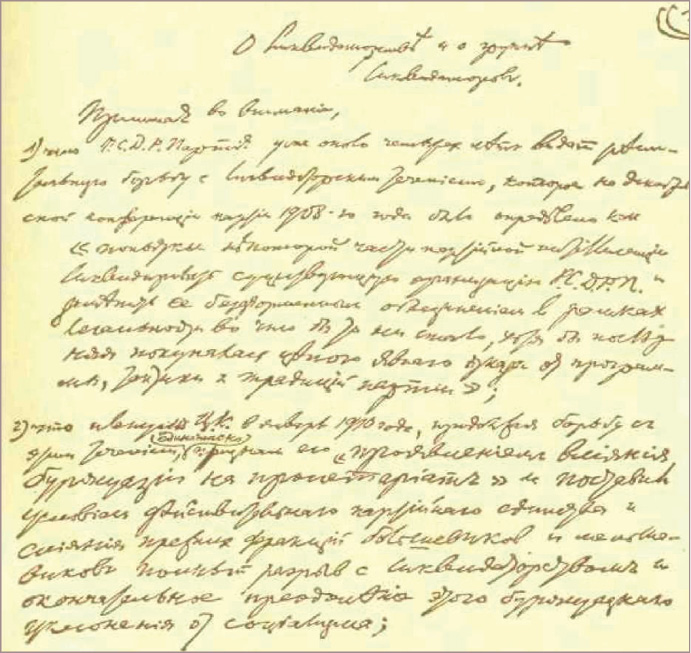 О ликвидаторствѣ и о группѣ
ликвидаторовъ.
Принимая во вниманіе,
1) что Р.С.Д.Р. Партія уже около четырех лѣтъ ведетъ рѣши-
тельную борьбу с ликвидаторским теченіем, которое на декабрь-
ской конференціи партіи 1908-го года было опредѣлено как
«попытки нѣкоторой части партійной интеллигенціи
ликвидировать существующую организацію Р.С.Д.Р.П. и
замѣнить ее безформенным объединеніем в рамках
легальности во что бы то ни стало, хотя бы послѣд-
няя покупалась цѣною явнаго отказа от програм-
мы, тактики и традицій партіи»;
2) что пленум Ц.К. в январѣ 1910 года, продолжая борьбу съ
этим теченіем, единогласно признал его «проявленіем вліянія
буржуазіи на пролетаріатъ» и поставил
условіем дѣйствительнаго партійнаго единства и
сліянія прежних фракцій большевиков и меньше-
виковъ полный разрыв с ликвидаторством и
окончательное преодолѣніе этого буржуазнаго
уклоненія от соціализма;